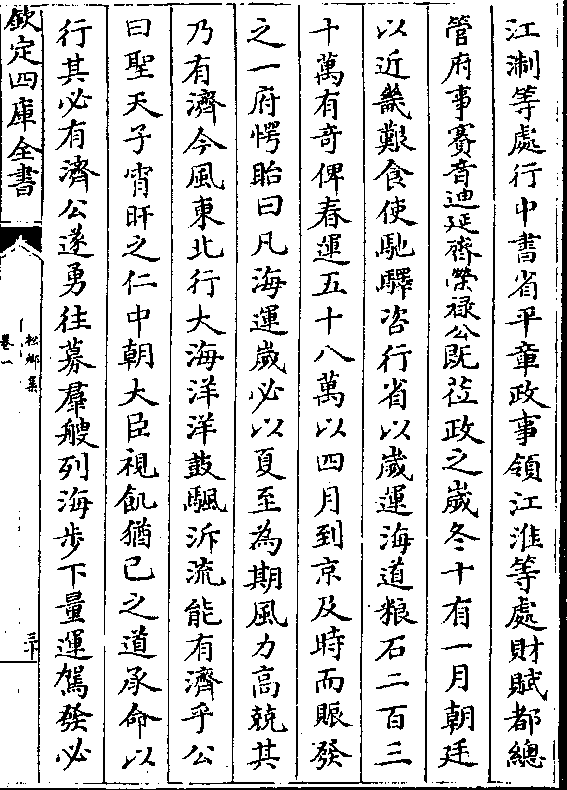 江淛等處行中書省平章政事領江淮等處財賦都總
管府事賽音迪延齊榮祿公既莅政之嵗冬十有一月朝廷
以近畿艱食使馳驛咨行省以嵗運海道粮石二百三
十萬有奇俾春運五十八萬以四月到京及時而賑發
之一府愕眙曰凡海運嵗必以夏至為期風力高兢其
乃有濟今風東北行大海洋洋鼓颿泝流能有濟乎公
曰聖天子宵旰之仁中朝大臣視飢猶已之道承命以
行其必有濟公遂勇往募羣艘列海步下量運駕發必
欽定四庫全書
松鄉集
卷一
三十